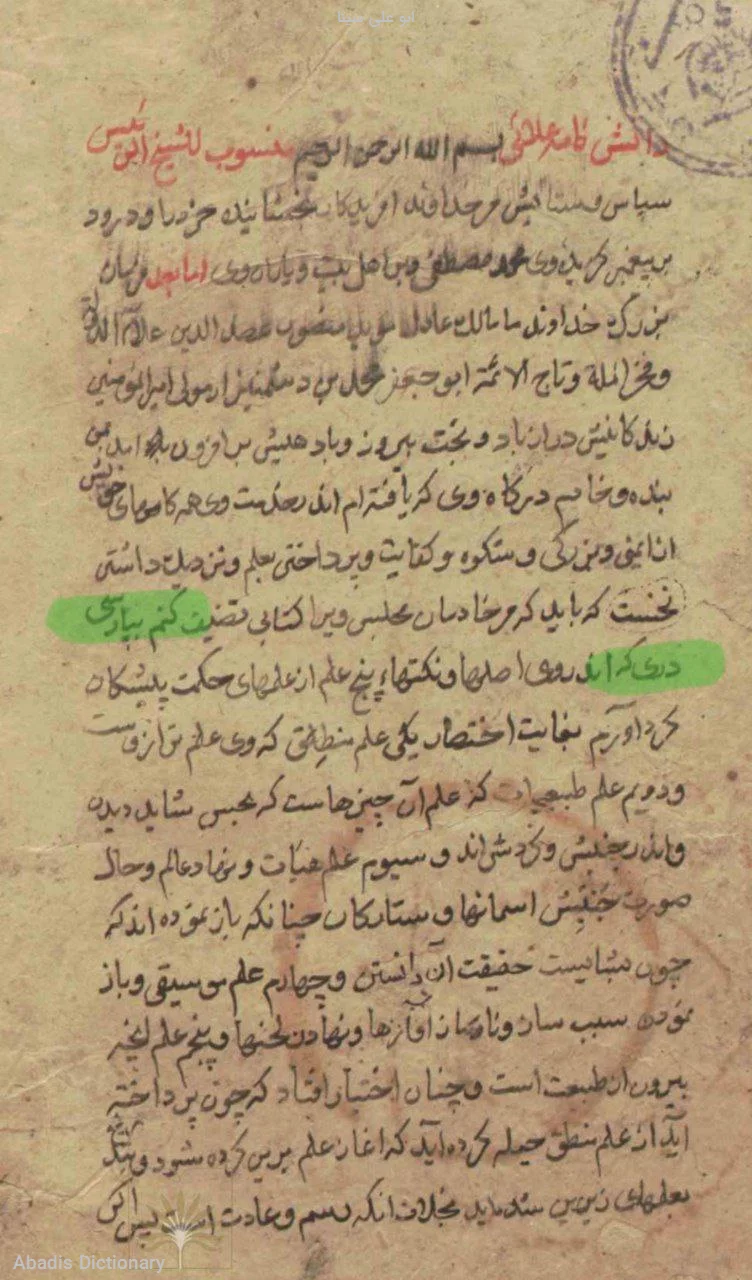 ابو علی سینا
دانش نامه علائی بسم الله الرحمن الرحیم منسوب للشیخ الرئیس
سپاس و ستایش مر خداوند آفریدکار بخشاینده خرد را و درود
بر پیغمبر کریده وی محمد مصطفی و بر اهل بیت و یاران وی اما بعد فرمان
بزرک خداوند ما مالک عادل مؤید منصور عضد الدین علاء الدوله
و فخر الملة و تاج الائمة ابو جعفر محمد بن دشمنزار مولی امیر المؤمنین
زندکانیش دراز باد و بخت پیروز و پادهیش بر افزون باد آمد بمن
بنده و خادم درکاه وی که یافته ام اندر خدمت وی همه کامهای خویش
از ایمنی و بزرکی و شکوه و کفایت و پرداختن بعلم و نزدیک داشتن
نخست که باید که مر خادمان مجلس ویرا کتابی تصنیف کنم بپارسی
دری که اندروی اصلها و نکتهاء پنج علم از علمهای حکمت پیشینکان
کرد آورم بغایت اختصار یکی علم منطق که وی علم ترازوست
و دویم علم طبیعیات که علم آن چیزهاست که بحس شاید دیدن
و اندر جنبش و کردش اند و سیوم علم هیات و نهاد عالم و حال
صورت جنبش اسمانها و ستارکان چنانکه باز نموده اند که
چون شایست حقیقت آن دانستن و چهارم علم موسیقی و باز
نمودن سبب ساز و ناساز آوازها و نهادن لحنها و پنجم علم آنچه
بیرون از طبیعت است و چنان اختیار افتاد که چون پرداخته
آید از علم منطق حیله کرده آید که اغاز علم برین کرده شود و بتدریج
بعلمهای زیرین شده باید بخلاف آنکه رسم و عادت است پس اکر
Abadis Dictionary